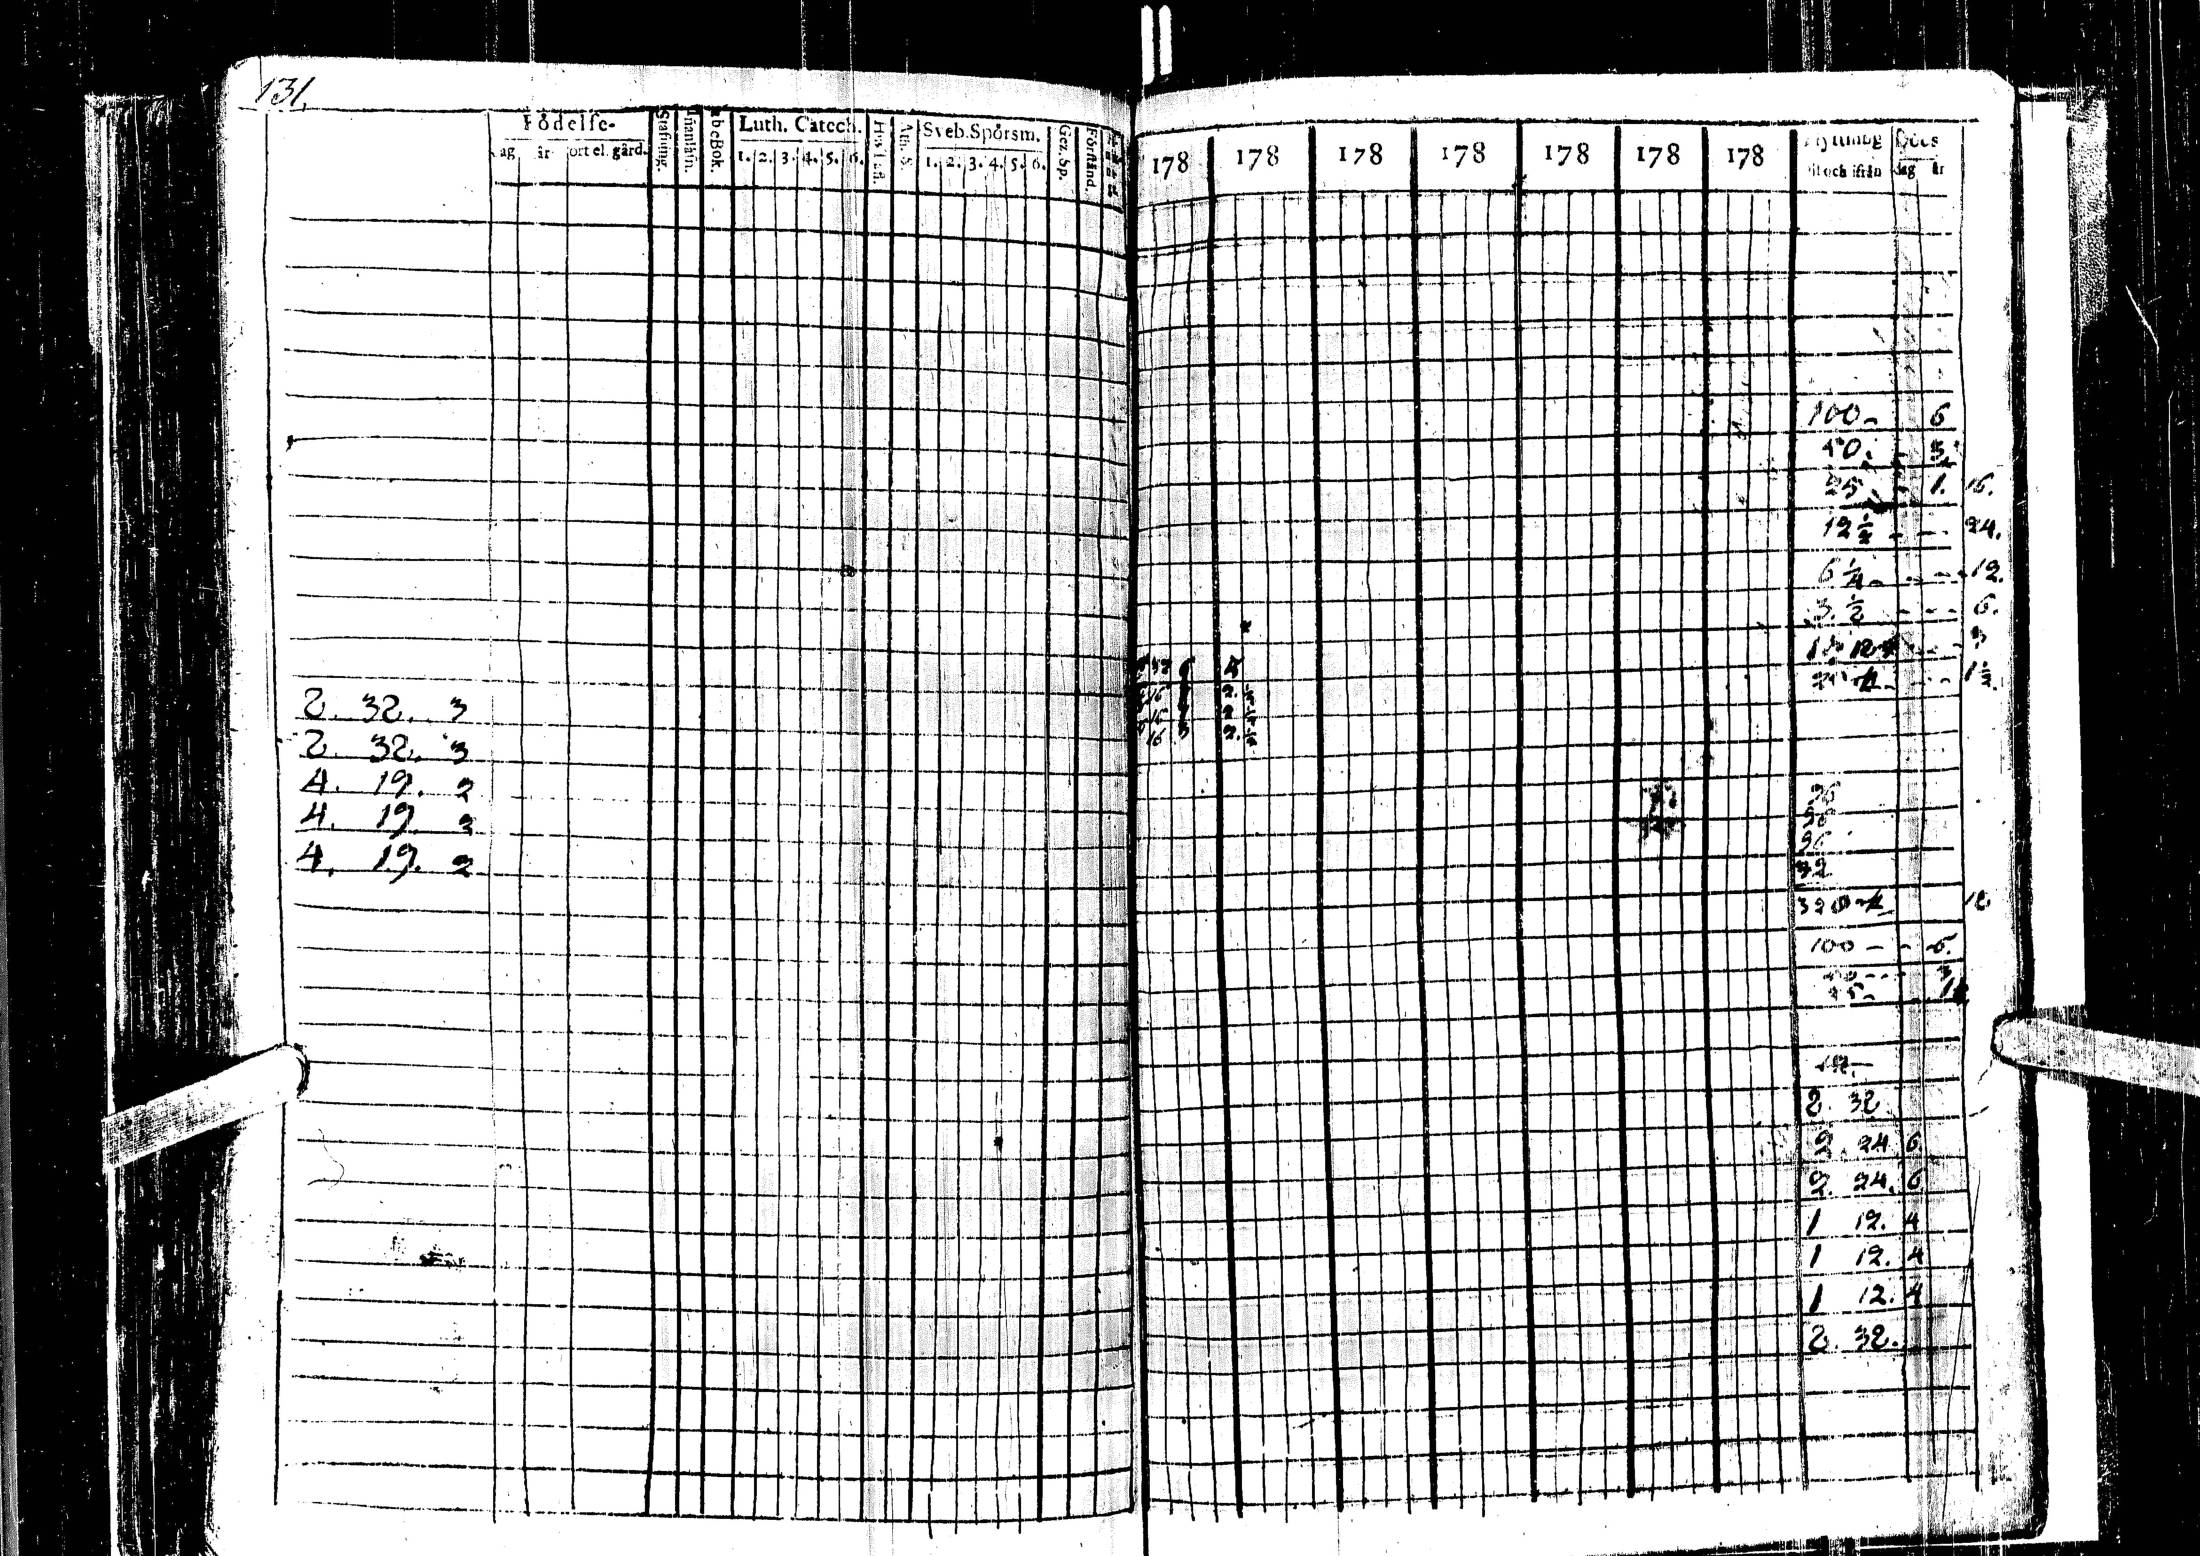 131.
Födelse-
dag år ort el. gård.
Stafning.
Innanläsn.
A b c Bok.
Luth. Catech.
1. 2. 3. 4. 5. 6.
Hust. Tafl.
Ath. S.
Sveb. Spörsm.
1. 2. 3. 4. 5. 6.
Gez. Sp.
Förstånd.
2. 32. 3
2. 32. 3
4. 19. 2
4. 19. 2
4. 19. 2
178 178 178 178 178 178 178
Flyttning
til och ifrån
Döds
dag år
100 - 6
50. - 3.
25 - 1. 16.
12 ½ - - - 24.
6 ¼ - - - 12.
3. ½ - - - 6.
3
1 ½.
16
16
16 3 2. ½
36
36
36
32
320 12
100 - - 6.
2. 32
2. 24. 6
2. 24. 6
1 12. 4
1 12. 4
1 12. 4
2. 32.